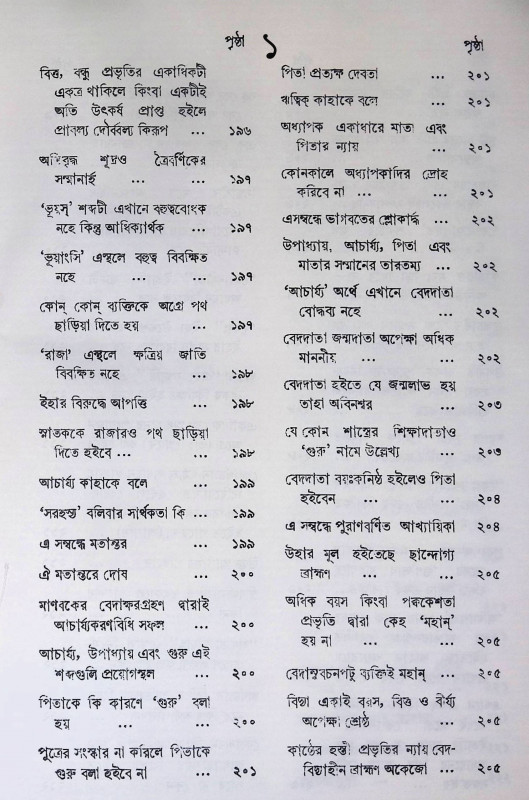 পৃষ্ঠা
১
বিত্ত, বন্ধু প্রভৃতির একাধিকটী
একত্র থাকিলে কিংবা একটীই
অতি উৎকর্ষ প্রাপ্ত হইলে
প্রাবল্য দৌর্ব্বল্য কিরূপ ... ১৯৬
অতিবৃদ্ধ শূদ্রও ত্রৈবর্ণিকের
সম্মানার্হ ... ... ১৯৭
‘ভূয়স্’ শব্দটী এখানে বহুত্ববোধক
নহে কিন্তু আধিক্যার্থক ... ১৯৭
‘ভূয়াংসি’ এস্থলে বহুত্ব বিবক্ষিত
নহে ... ... ১৯৭
কোন্ কোন্ ব্যক্তিকে অগ্রে পথ
ছাড়িয়া দিতে হয় ... ১৯৭
‘রাজা’ এস্থলে ক্ষত্রিয় জাতি
বিবক্ষিত নহে ... ১৯৮
ইহার বিরুদ্ধে আপত্তি ... ১৯৮
স্নাতককে রাজারও পথ ছাড়িয়া
দিতে হইবে ... ... ১৯৮
আচার্য্য কাহাকে বলে ... ১৯৯
‘সরহস্য’ বলিবার সার্থকতা কি ... ১৯৯
এ সম্বন্ধে মতান্তর ... ১৯৯
ঐ মতান্তরে দোষ ... ২০০
মাণবকের বেদাক্ষরগ্রহণ দ্বারাই
আচার্য্যকরণবিধি সফল ... ২০০
আচার্য্য, উপাধ্যায় এবং গুরু এই
শব্দগুলি প্রয়োগস্থল ... ২০০
পিতাকে কি কারণে ‘গুরু’ বলা
হয় ... ... ২০০
পুত্রের সংস্কার না করিলে পিতাকে
গুরু বলা হইবে না ... ২০১
পৃষ্ঠা
পিতা প্রত্যক্ষ দেবতা ... ২০১
ঋত্বিক্ কাহাকে বলে ... ২০১
অধ্যাপক একাধারে মাতা এবং
পিতার ন্যায় ... ... ২০১
কোনকালে অধ্যাপকাদির দ্রোহ
করিবে না ... ... ২০১
এসম্বন্ধে ভাগবতের শ্লোকার্দ্ধ ... ২০২
উপাধ্যায়, আচার্য্য, পিতা এবং
মাতার সম্মানের তারতম্য ... ২০২
‘আচার্য্য’ অর্থে এখানে বেদদাতা
বোদ্ধব্য নহে ... ২০২
বেদদাতা জন্মদাতা অপেক্ষা অধিক
মাননীয় ... ... ২০২
বেদদাতা হইতে যে জন্মলাভ হয়
তাহা অবিনশ্বর ... ২০৩
যে কোন শাস্ত্রের শিক্ষাদাতাও
‘গুরু’ নামে উল্লেখ্য ... ২০৩
বেদদাতা বয়ঃকনিষ্ঠ হইলেও পিতা
হইবেন ... ... ২০৪
এ সম্বন্ধে পুরাণবর্ণিত আখ্যায়িকা ২০৪
উহার মূল হইতেছে ছান্দোগ্য
ব্রাহ্মণ ... ... ২০৫
অধিক বয়স কিংবা পক্বকেশতা
প্রভৃতি দ্বারা কেহ ‘মহান্’
হয় না ... ... ২০৫
বেদানুবচনপটু ব্যক্তিই মহান্ ... ২০৫
বিদ্যা একাই বয়স, বিত্ত ও বীর্য্য
অপেক্ষা শ্রেষ্ঠ ... ২০৫
কাষ্ঠের হস্তী প্রভৃতির ন্যায় বেদ-
বিদ্যাহীন ব্রাহ্মণ অকেজো ... ২০৫